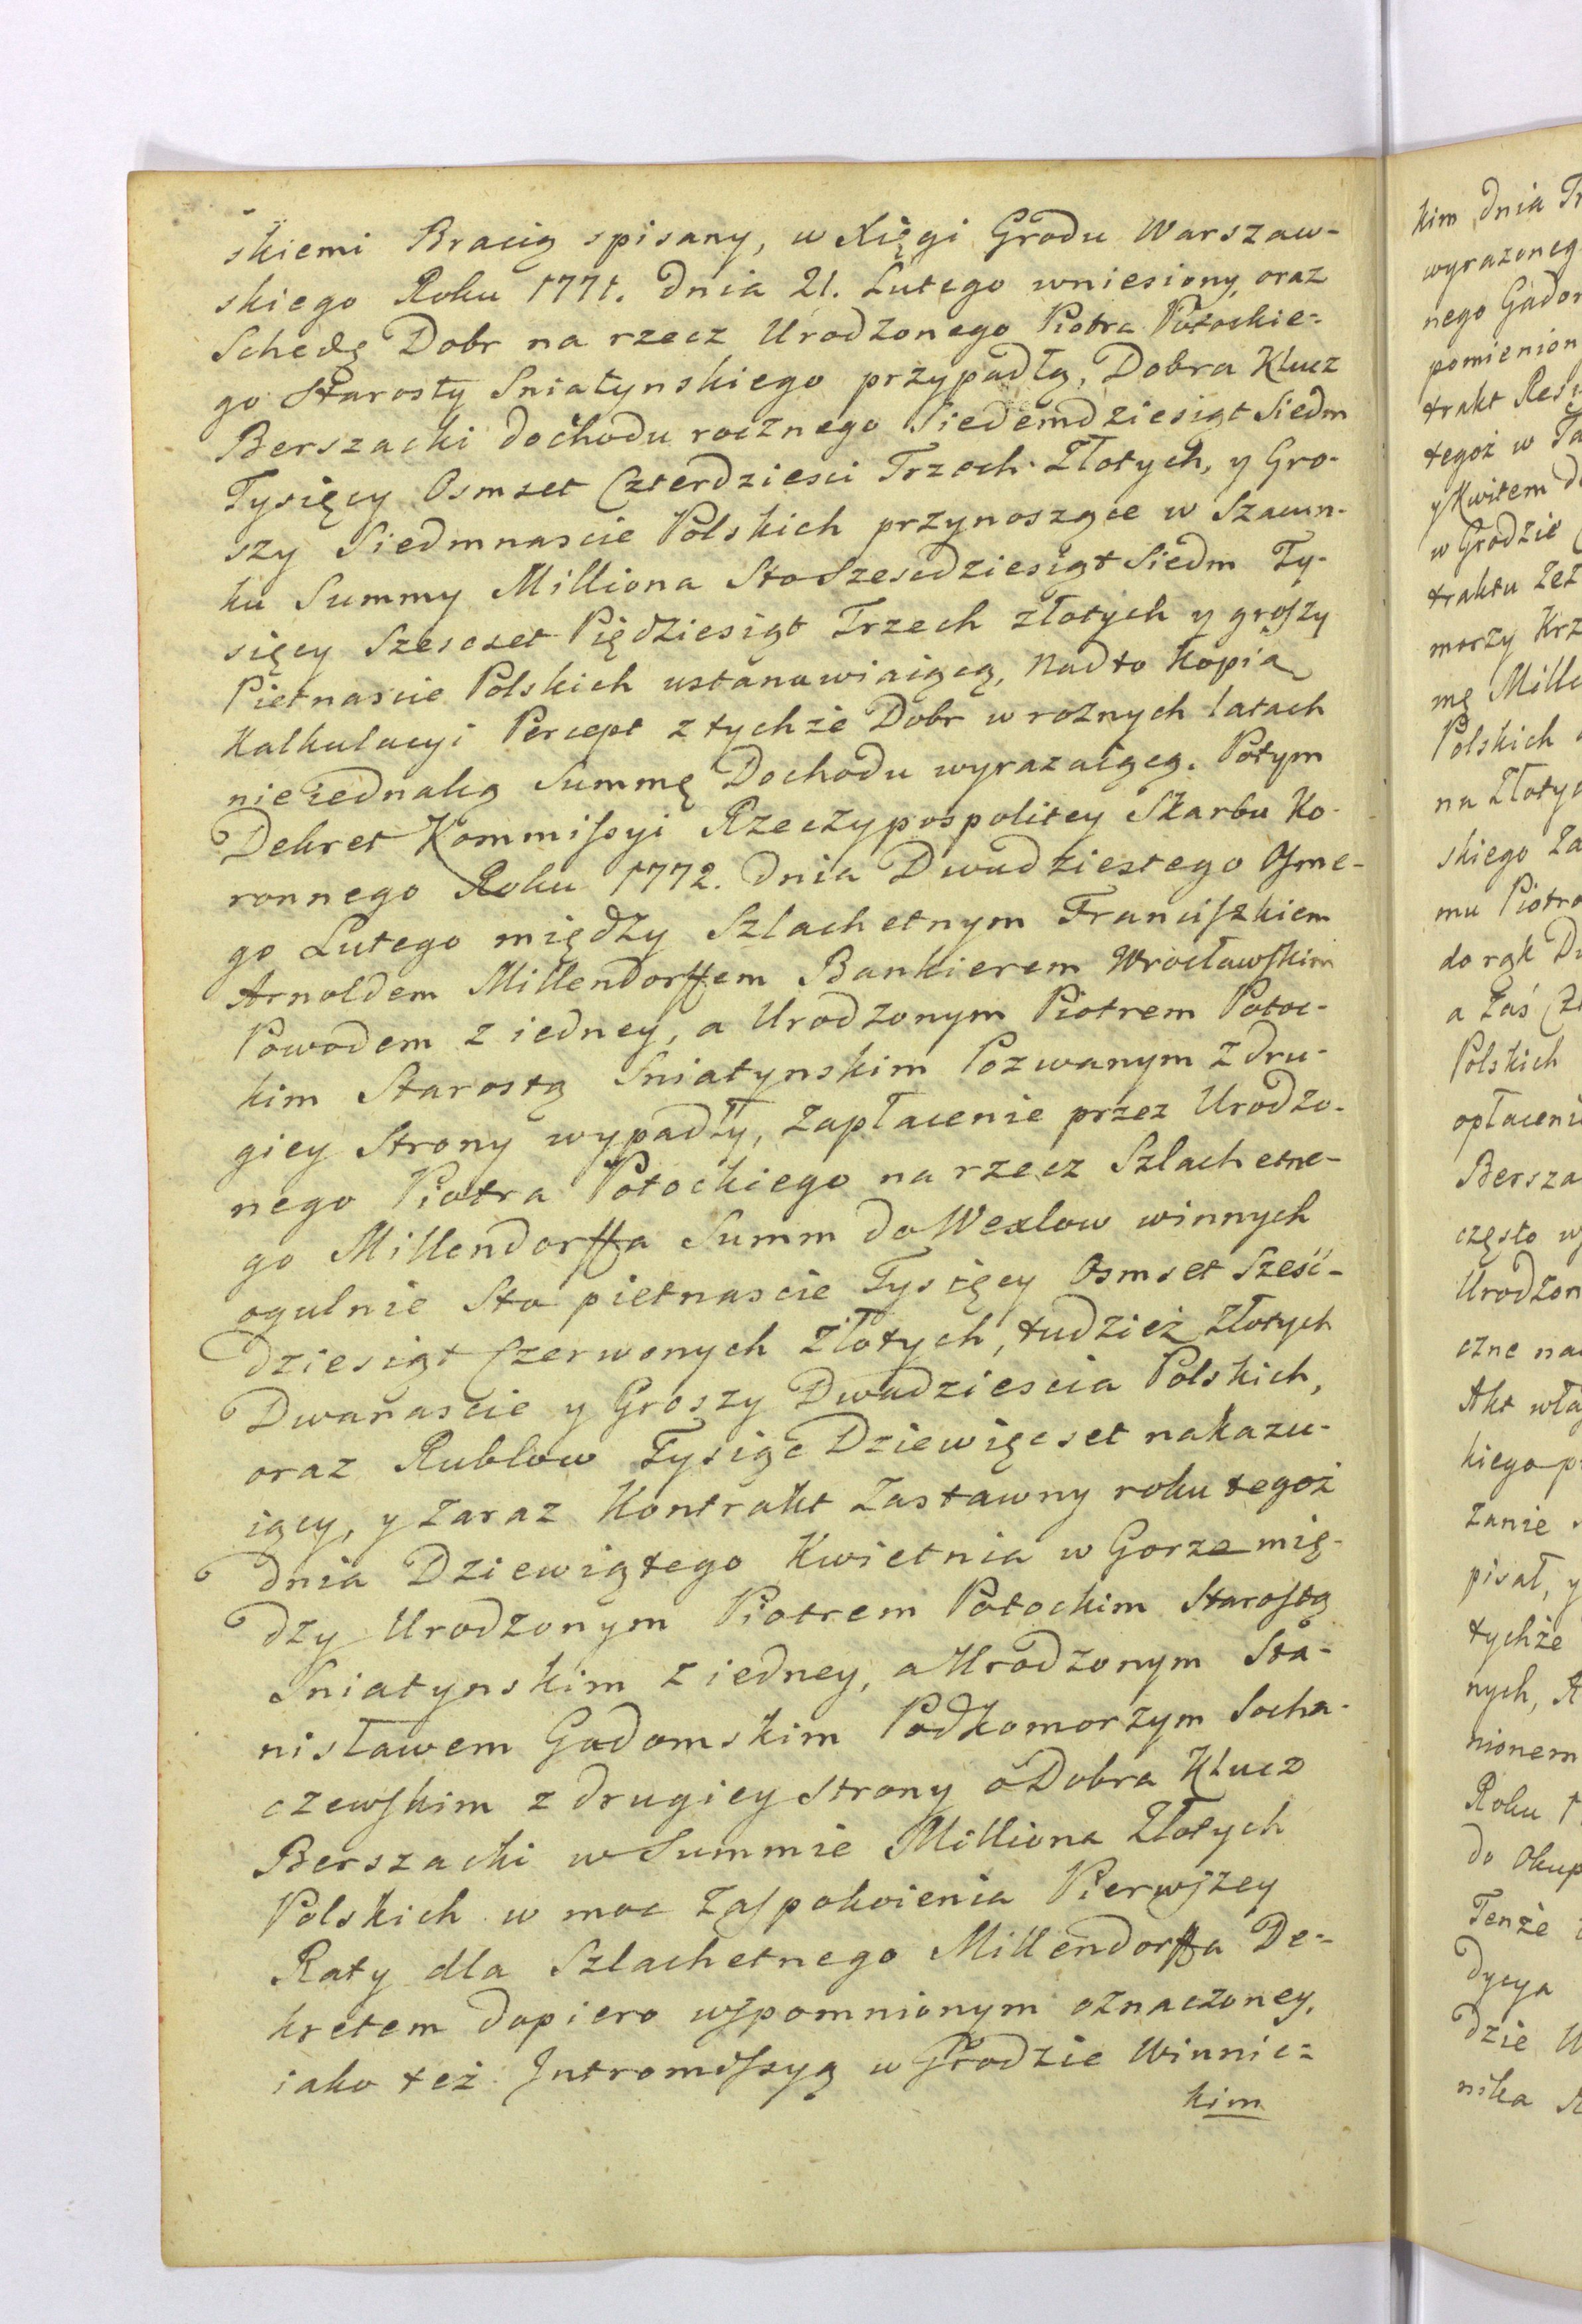 skiemi Bracią spisany, w Xięgi Grodu Warszaw-
skiego Roku 1771. dnia 21. Lutego wniesiony, oraz
Schedę Dobr na rzecz Urodzonego Piotra Potockie=
go Starosty Sniatynskiego przypadłą, Dobra Klucz
Berszacki dochodu rocznego Siedemdziesiąt Siedm
Tysięcy Osmset Czterdziesci Trzech Złotych, y Gro-
szy Siedmnascie Polskich przynoszące w Szacun-
ku Summy Milliona Sto Szescdziesiąt Siedm Ty-
sięcy Szescset Piędziesiąt Trzech złotych y groszy
Pietnascie Polskich ustanawiaiącą, nadto Kopia
Kalkulacyi Percept z tychże Dobr w roznych latach
nieiednaką Summę Dochodu wyrazaiącą. Potym
Dekret Kommissyi Rzeczypospolitey Skarbu Ko-
ronnego Roku 1772. dnia Dwudziestego Osme-
go Lutego między Szlachetnym Franciszkiem
Arnoldem Millendorffem Bankierem Wrocławskim
Powodem z iedney, a Urodzonym Piotrem Potoc-
kim Starostą Sniatynskim Pozwanym z dru-
giey Strony wypadły, Zapłacenie przez Urodzo-
nego Piotra Potockiego na rzecz Szlachetne-
go Millendorffa Summ do Wexlow winnych
ogulnie Sto pietnascie Tysięcy Osmset Sześć-
dziesiąt Czerwonych Złotych, tudzież Złotych
Dwanascie y Groszy Dwadziescia Polskich,
oraz Rublow Tysiąc Dziewięcset nakazu-
iący, y zaraz Kontrakt Zastawny roku tegoż
dnia Dziewiątego Kwietnia w Gorze mię-
dzy Urodzonym Piotrem Potockim Starostą
Sniatynskim z iedney, a Urodzonym Sta-
nisławem Gadomskim Podkomorzym Socha-
czewskim z drugiey Strony o Dobra Klucz
Berszacki w Summie Milliona Złotych
Polskich w moc Zaspokoienia Pierwszey
Raty dla Szlachetnego Millendorffa De=
kretem dopiero wspomnionym oznaczoney,
iako też Intromissyą w Grodzie Winnic=
kim
kim dnia
wyrazoneg
nego Gado
pomienion
trakt
tegoż w
y Kwitem
w Grodzie
traktu
morzy
mę
Polskich
na Złoty
skiego
mu Piotro
do rąk
a Zaś
Polskich
opłaceni
Bersza
często
Urodzon
czne
Akt
kiego
zanie
pisał, y
tychże
nych,
nionem
Roku
do
Tenże
dycya
dzie
nika